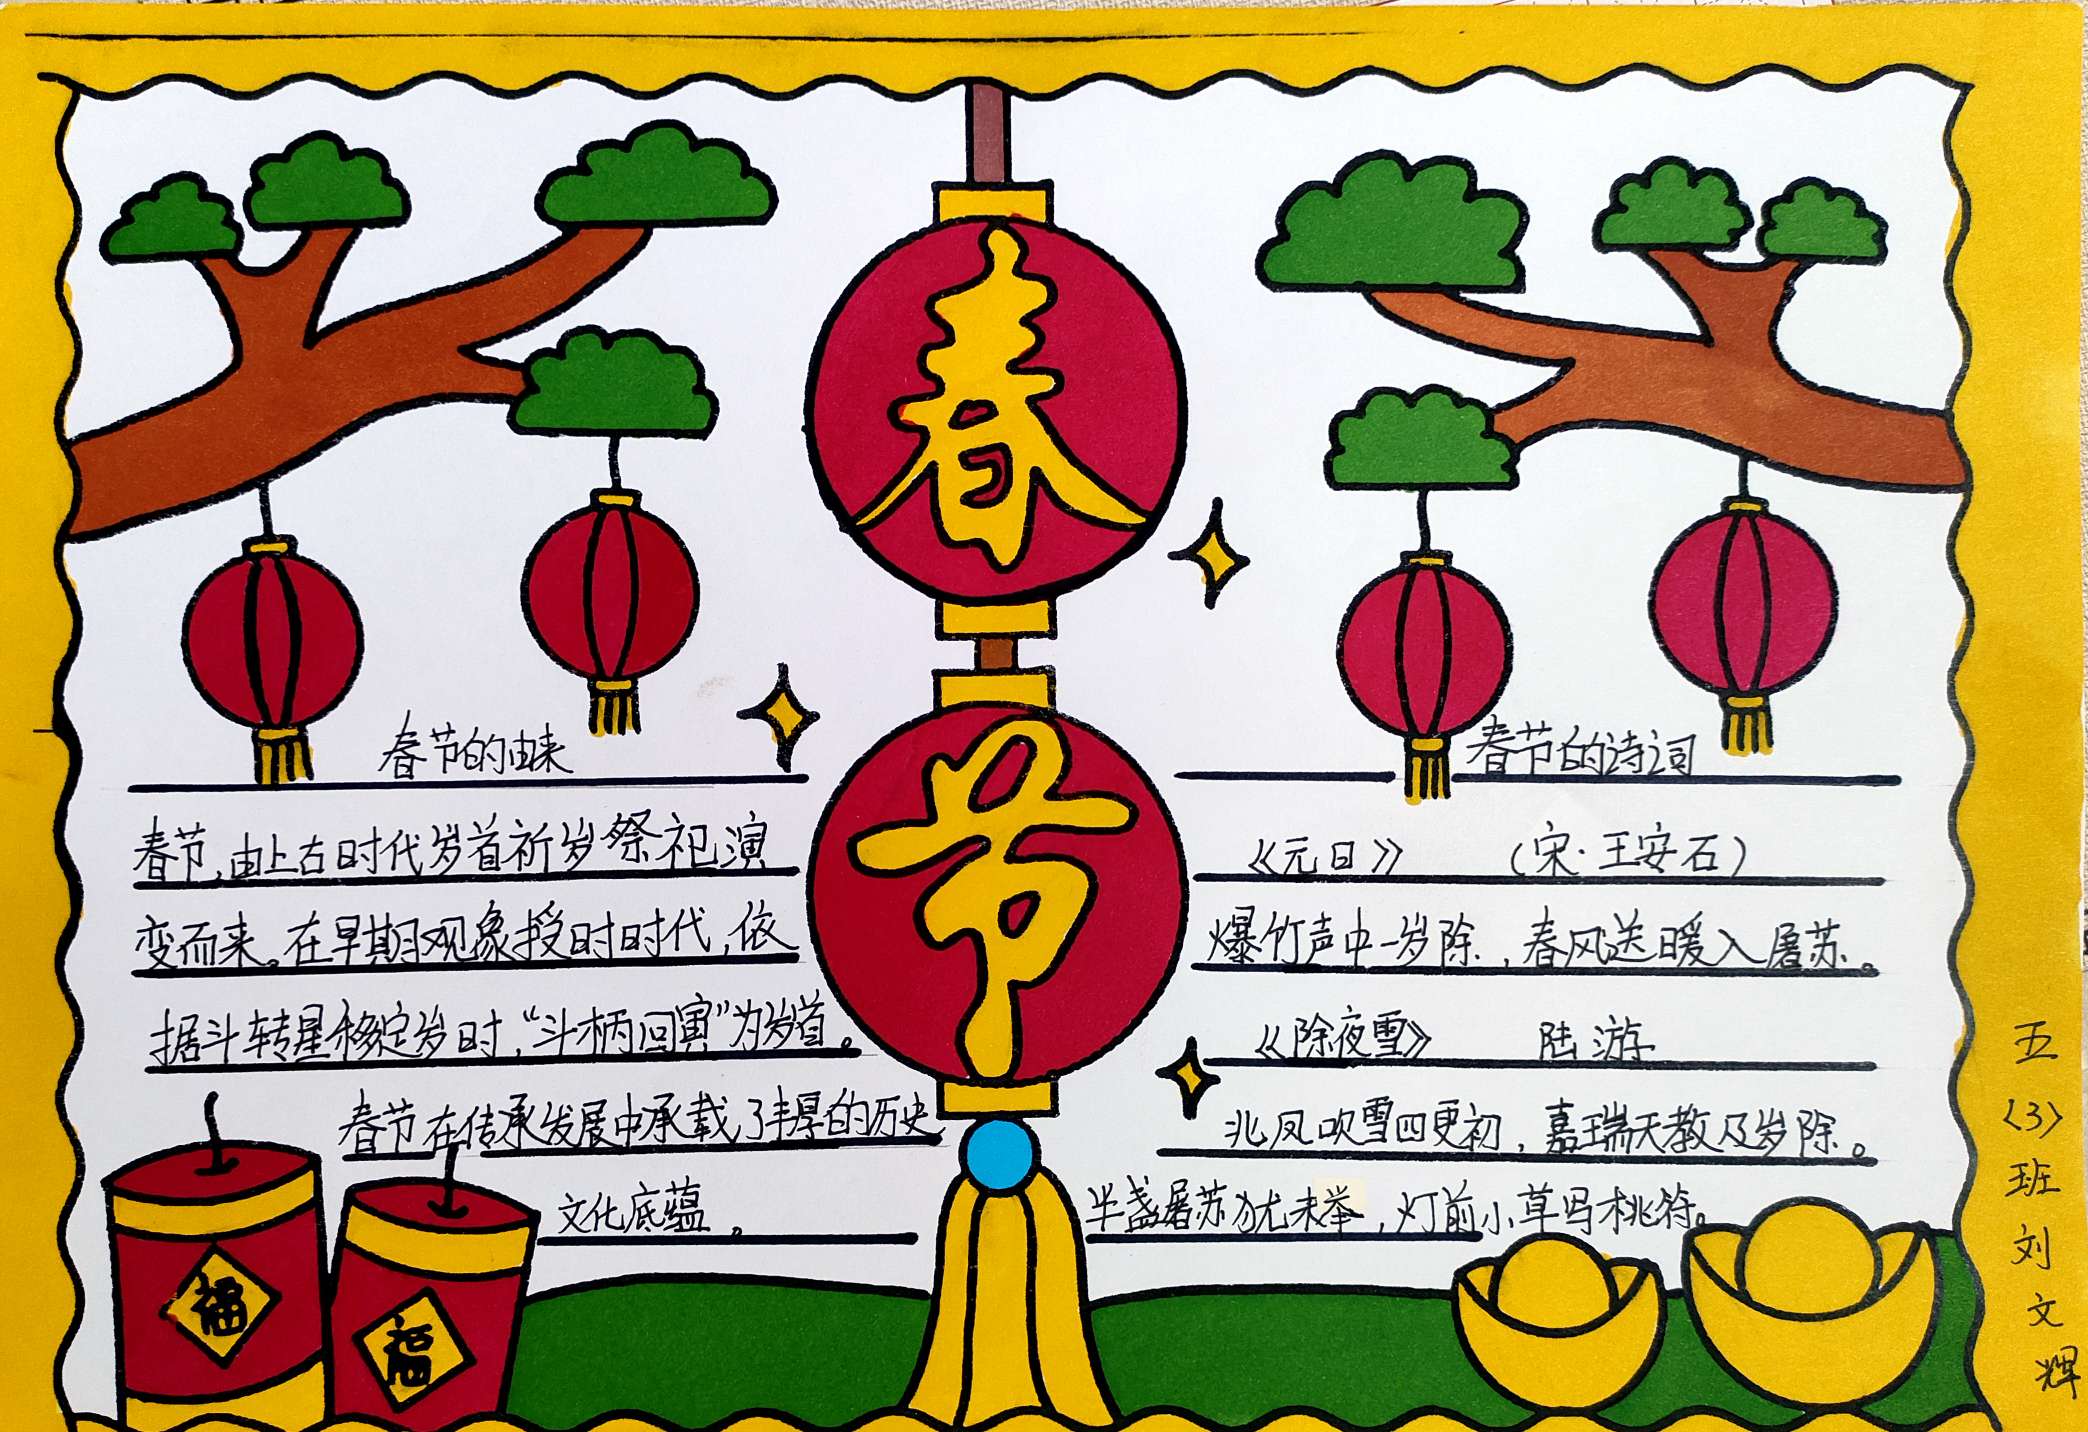 春
节
春节的由来
春节,由上古时代岁首祈岁祭祀演
变而来。在早期观象授时时代,依
据斗转星移定岁时,“斗柄回寅”为岁首。
春节在传承发展中承载了丰厚的历史
文化底蕴。
春节的诗词
《元日》 (宋·王安石)
爆竹声中一岁除,春风送暖入屠苏。
《除夜雪》 陆游
北风吹雪四更初,嘉瑞天教及岁除。
半盏屠苏犹未举,灯前小草写桃符。
福
福
五〈3〉班刘文辉